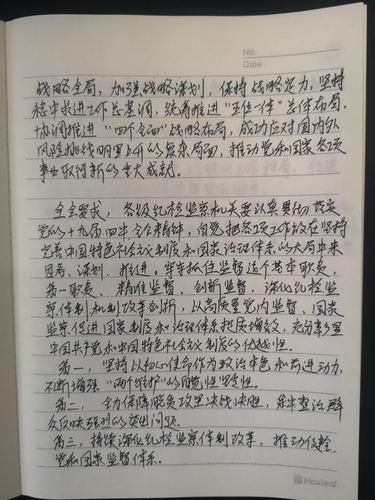 No.
Date
战略全局,加强战略谋划,保持战略定力,坚持
稳中求进工作总基调,统筹推进“五位一体”总体布局,
协调推进“四个全面”战略布局,成功应对国内外
风险挑战明显上升的复杂局面,推动党和国家各项
事业取得新的重大成就。
全会要求,各级纪检监察机关要认真贯彻落实
党的十九届四中全会精神,自觉把各项工作放在坚持
完善中国特色社会主义制度和国家治理体系的大局中来
思考、谋划、推进,牢牢抓住监督这个基本职责、
第一职责、精准监督、创新监督,深化纪检监
察体制机制改革创新,以高质量党内监督、国家
监察促进国家制度和治理体系提质增效,充分彰显
中国共产党和中国特色社会主义制度的优越性。
第一,坚持以初心使命作为政治本色和前进动力,
不断增强“两个维护”的自觉性坚定性。
第二,全力保障脱贫攻坚决战决胜,集中查治群
众反映强烈的突出问题。
第三,持续深化纪检监察体制改革,推动健全
党和国家监督体系。
Maxleaf